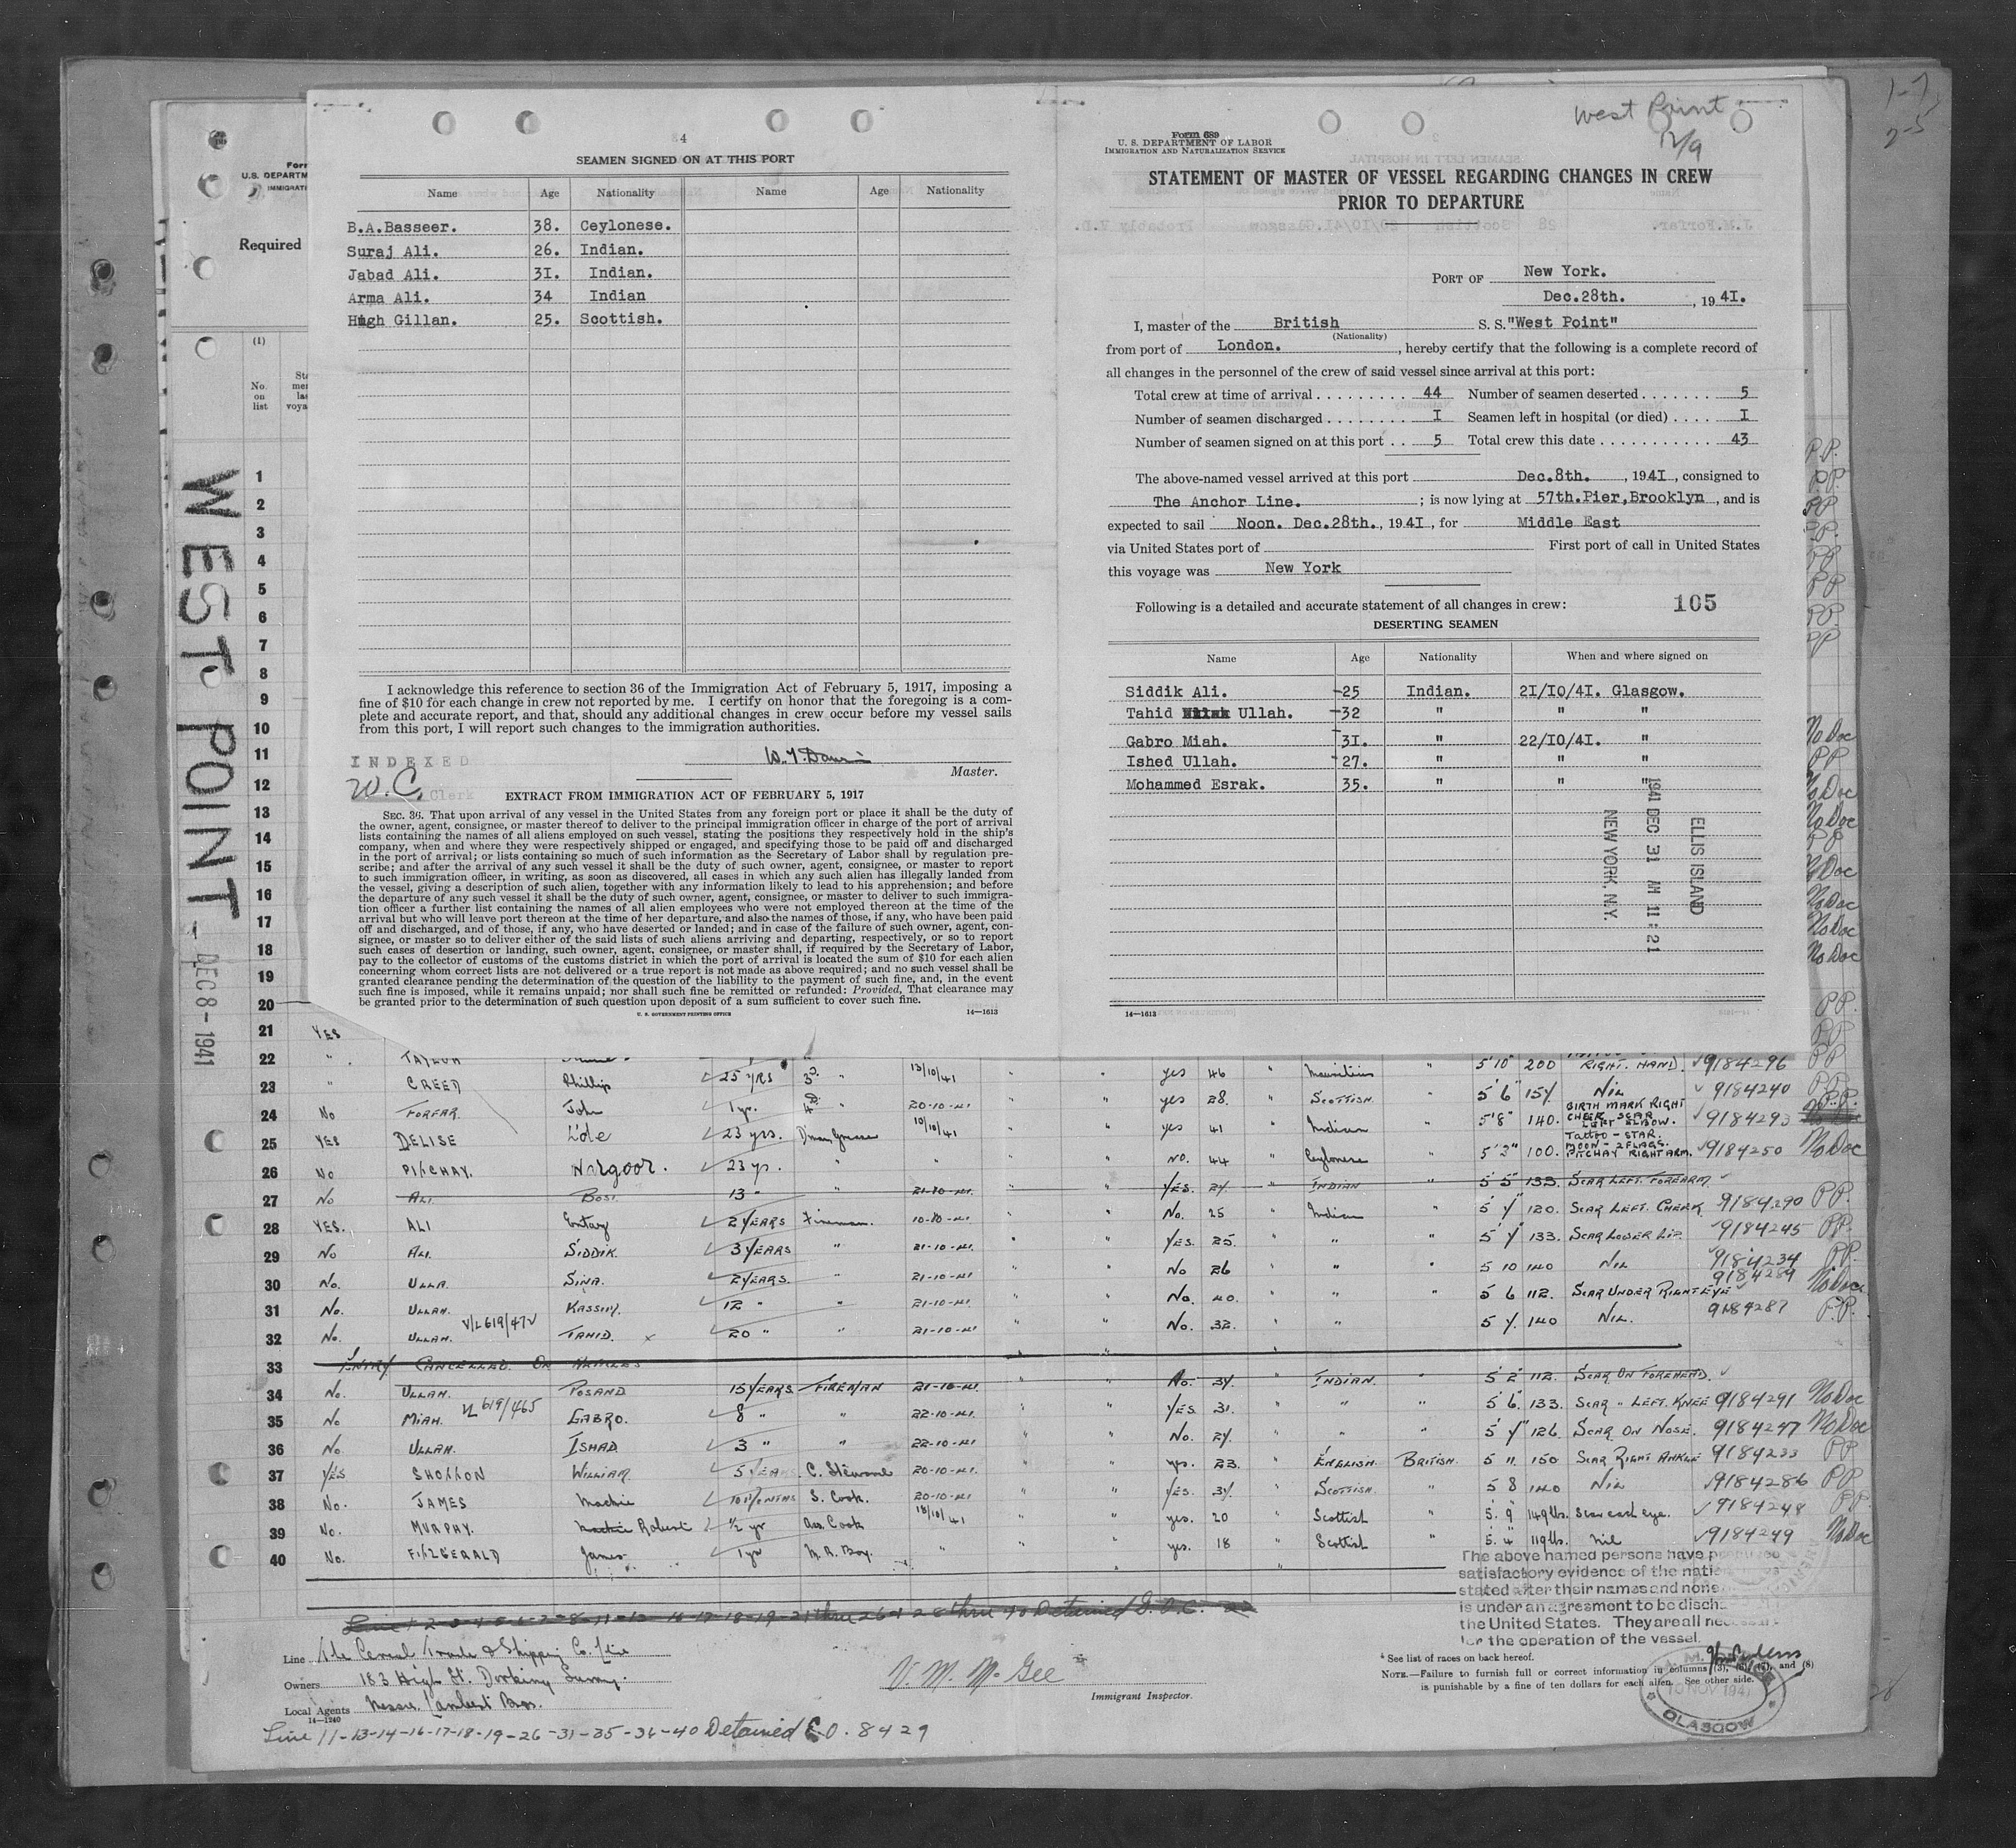 West Point
12/9
1-7
2-5
Form
U.S. DEPARTM
IMMIGRATI
Required
(1)
No. on list
WEST POINT - DEC 8 - 1941
4
SEAMEN SIGNED ON AT THIS PORT
Name Age Nationality Name Age Nationality
B.A.Basseer. 38. Ceylonese.
Suraj Ali. 26. Indian.
Jabad Ali. 3I. Indian.
Arma Ali. 34 Indian
Hugh Gillan. 25. Scottish.
I acknowledge this reference to section 36 of the Immigration Act of February 5, 1917, imposing a
fine of $10 for each change in crew not reported by me. I certify on honor that the foregoing is a com-
plete and accurate report, and that, should any additional changes in crew occur before my vessel sails
from this port, I will report such changes to the immigration authorities.
INDEXED
W.C. Clerk
Master.
EXTRACT FROM IMMIGRATION ACT OF FEBRUARY 5, 1917
SEC. 36. That upon arrival of any vessel in the United States from any foreign port or place it shall be the duty of
the owner, agent, consignee, or master thereof to deliver to the principal immigration officer in charge of the port of arrival
lists containing the names of all aliens employed on such vessel, stating the positions they respectively hold in the ship's
company, when and where they were respectively shipped or engaged, and specifying those to be paid off and discharged
in the port of arrival; or lists containing so much of such information as the Secretary of Labor shall by regulation pre-
scribe; and after the arrival of any such vessel it shall be the duty of such owner, agent, consignee, or master to report
to such immigration officer, in writing, as soon as discovered, all cases in which any such alien has illegally landed from
the vessel, giving a description of such alien, together with any information likely to lead to his apprehension; and before
the departure of any such vessel it shall be the duty of such owner, agent, consignee, or master to deliver to such immigra-
tion officer a further list containing the names of all alien employees who were not employed thereon at the time of the
arrival but who will leave port thereon at the time of her departure, and also the names of those, if any, who have been paid
off and discharged, and of those, if any, who have deserted or landed; and in case of the failure of such owner, agent, con-
signee, or master so to deliver either of the said lists of such aliens arriving and departing, respectively, or so to report
such cases of desertion or landing, such owner, agent, consignee, or master shall, if required by the Secretary of Labor,
pay to the collector of customs of the customs district in which the port of arrival is located the sum of $10 for each alien
concerning whom correct lists are not delivered or a true report is not made as above required; and no such vessel shall be
granted clearance pending the determination of the question of the liability to the payment of such fine, and, in the event
such fine is imposed, while it remains unpaid; nor shall such fine be remitted or refunded: Provided, That clearance may
be granted prior to the determination of such question upon deposit of a sum sufficient to cover such fine.
U. S. GOVERNMENT PRINTING OFFICE 14—1613
Form 689
U. S. DEPARTMENT OF LABOR
IMMIGRATION AND NATURALIZATION SERVICE
STATEMENT OF MASTER OF VESSEL REGARDING CHANGES IN CREW
PRIOR TO DEPARTURE
PORT OF New York.
Dec.28th. , 19 4I.
I, master of the British S. S. "West Point"
(Nationality)
from port of London. , hereby certify that the following is a complete record of
all changes in the personnel of the crew of said vessel since arrival at this port:
Total crew at time of arrival 44 Number of seamen deserted 5
Number of seamen discharged I Seamen left in hospital (or died) I
Number of seamen signed on at this port 5 Total crew this date 43
The above-named vessel arrived at this port Dec.8th. , 194I , consigned to
The Anchor Line. ; is now lying at 57th.Pier,Brooklyn , and is
expected to sail Noon. Dec.28th. , 194I , for Middle East
via United States port of First port of call in United States
this voyage was New York
Following is a detailed and accurate statement of all changes in crew: 105
DESERTING SEAMEN
Name Age Nationality When and where signed on
Siddik Ali. 25 Indian. 2I/IO/4I. Glasgow.
Tahid Ullah. 32 " " "
Gabro Miah. 3I. " 22/IO/4I. "
Ished Ullah. 27. " " "
Mohammed Esrak. 35. " " "
ELLIS ISLAND
1941 DEC 31 AM 11:21
NEW YORK, N.Y.
14—1613
1
2
3
4
5
6
7
8
9
10
11
12
13
14
15
16
17
18
19
20
21 YES
22 " TAYLOR 5'10" 200 RIGHT. HAND. 9184296 PP
23 " CREED Phillip 25 YRS 3 " 13/10/41 " " yes 46 " Mauritius " 5'6" 157 NIL 9184240 PP
24 No FORFAR John 1 yr. 4 " 20-10-41 " " yes 28. " SCOTTISH " 5'8" 140. BIRTH MARK RIGHT CHEEK SCAR LEFT ELBOW. 9184293 P.P.
25 YES DELISE 23 yrs. 10/10/41 " " yes 41 " Indian " 5'3" 100. TATTOO - STAR. MOON - 2 FLAGS. PITCHAY RIGHT ARM. 9184250 No Doc
26 No PITCHAY. Norgoor. 23 yr. " " " " NO. 44 " Ceylonese
27 No ALI. 13 " " 21-10-41. " " YES. 27 " INDIAN " 5 5 133. SCAR LEFT FOREARM
28 YES. ALI Entaz 2 YEARS Fireman. 10-10-41 " " No. 25 " Indian " 5 7 120. SCAR LEFT. CHEEK 9184290 P.P.
29 No ALI. SIDDIK 3 YEARS " 21-10-41 " " YES. 25. " " 5 7 133. SCAR LOWER LIP. 9184245 P.P.
30 No. ULLA. SINA. 2 YEARS. " 21-10-41 " " No 26 " " 5 10 140 NIL 9184234 P.P.
31 No. ULLAH. KASSIM. 12 " " 21-10-41 " " No. 40. " " 5 6 112. SCAR UNDER RIGHT EYE 9184289 No Doc
32 No. ULLAH. V/L 619/472 TAHID. x 20 " " 21-10-41 " " No. 32. " " 5 7. 140 NIL. 9184287 P.P.
33 ENTRY CANCELLED.
34 No. ULLAH. POSAND 15 YEARS FIREMAN 21-10-41. " " No. 37 " INDIAN. " 5 2 112. SCAR ON FOREHEAD.
35 No MIAH. VL 619/465 GABRO. 8 " " 22-10-41. " " YES 31. " " " 5 6. 133. SCAR " LEFT KNEE 9184291 No Doc
36 No. ULLAH. ISHAD 3 " " 22-10-41 " " No. 27. " " " 5 7 126. SCAR ON NOSE. 9184247 No Doc
37 YES SHOTTON WILLIAM 5 YEARS C. Steward 20-10-41 " " yes. 23. " ENGLISH. BRITISH. 5 11. 150 SCAR RIGHT ANKLE 9184233 PP
38 No. JAMES Mackie S. Cook. 20-10-41 " " YES. 37. " SCOTTISH. " 5 8 140 NIL 9184286 PP
39 No. MURPHY. Robert 1/2 yr Ass. Cook 13/10/41 " " yes. 20 " Scottish " 5.9" 149lbs. Scar each eye. 9184248 PP
40 No. FITZGERALD James 1 yr M.R. Boy. " " " yes. 18 " Scottish " 5.4" 119lbs. nil 9184249 No Doc
The above named persons have
satisfactory evidence of the
stated after their names and none
is under an agreement to be
the United States. They are all
for the operation of the vessel.
Line The Cereal Trade & Shipping Co. Ltd
Owners 183 High St. Dorking Surrey.
Local Agents Messrs. Lambert Bros.
14—1240
V. M. McGee
Immigrant Inspector.
* See list of races on back hereof.
NOTE.—Failure to furnish full or correct information in columns (3), (6), (7), and (8)
is punishable by a fine of ten dollars for each alien. See other side.
10 NOV 1941
GLASGOW
Line 11-13-14-16-17-18-19-26-31-35-36-40 Detained E.O. 8429